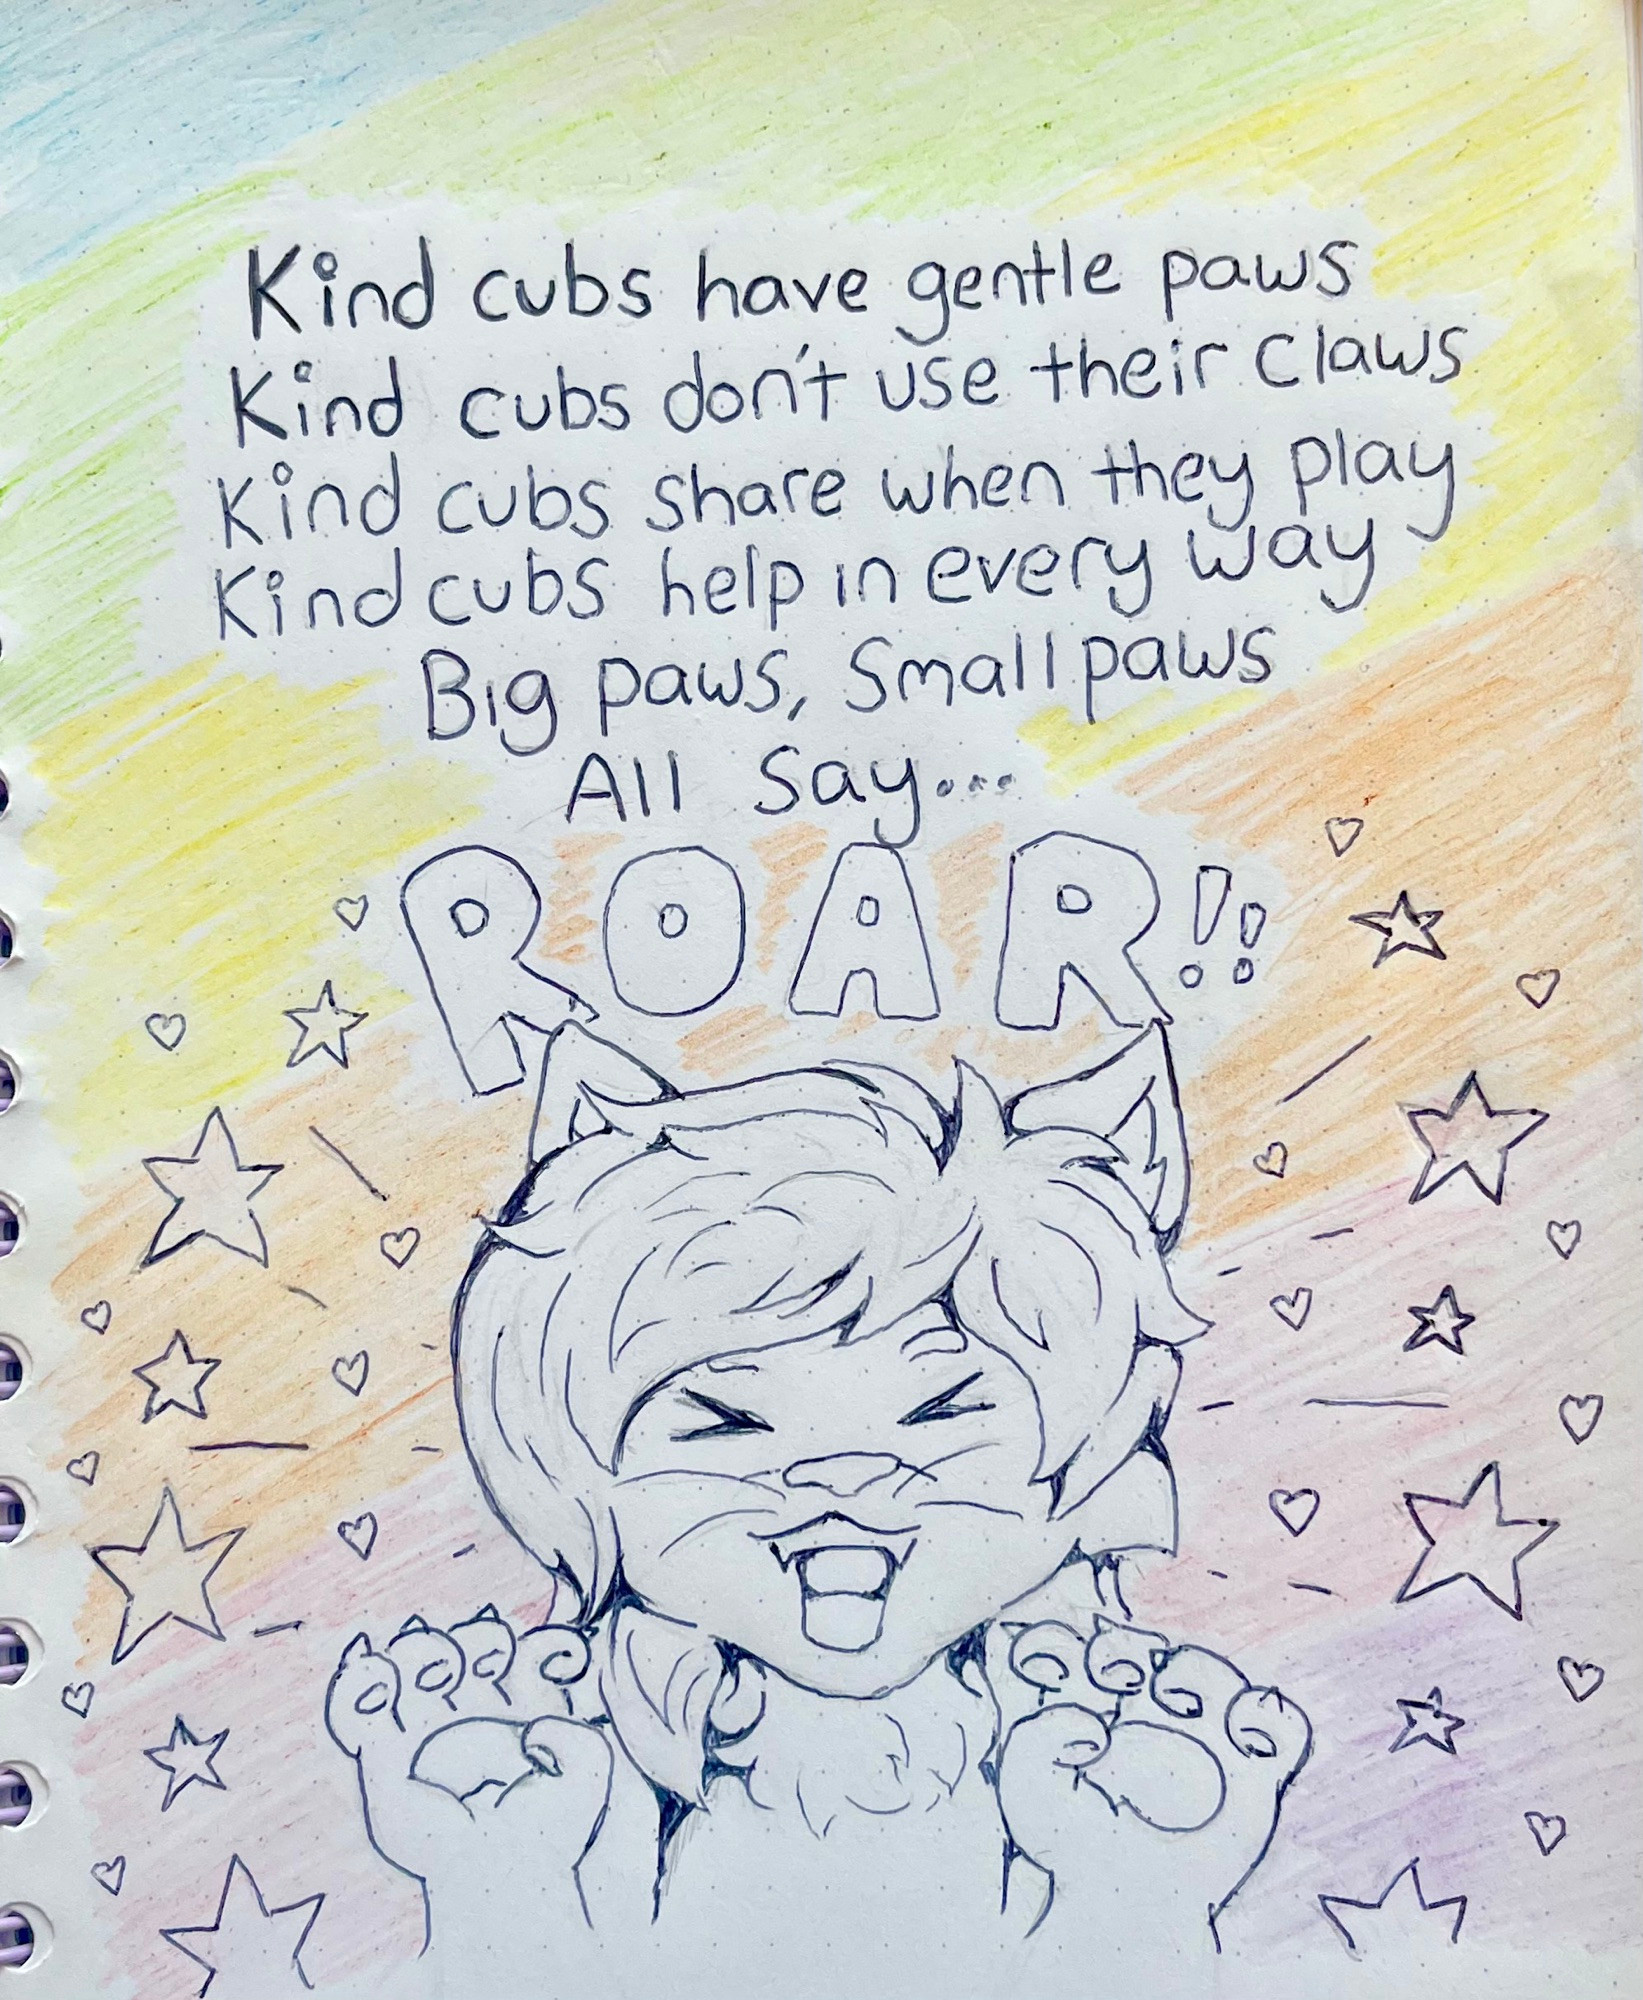 Kind cubs have gentle paws
Kind cubs don't use their claws
Kind cubs share when they play
Kind cubs help in every way
Big paws, Small paws
All Say...
ROAR!!